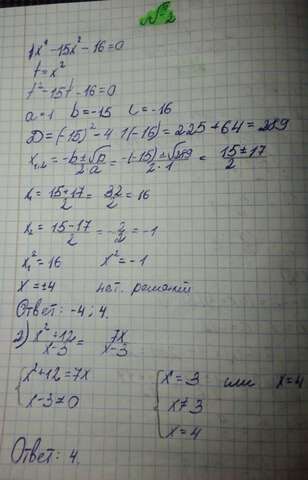 №2
1) x⁴-15x²-16=0
t=x²
t²-15t-16=0
a=1 b=-15 c=-16
D=(-15)²-4·1·(-16)=225+64=289
x₁,₂=(-b±√D)/(2a)=(-(-15)±√289)/(2·1)=(15±17)/2
x₁=(15+17)/2=32/2=16
x₂=(15-17)/2=-2/2=-1
x₁²=16 x²=-1
x=±4 нет. решений
Ответ: -4; 4.
2) (x²+12)/(x-3)=7x/(x-3)
{x²+12=7x {x=3 или x=4
x-3≠0 x≠3
x=4
Ответ: 4.